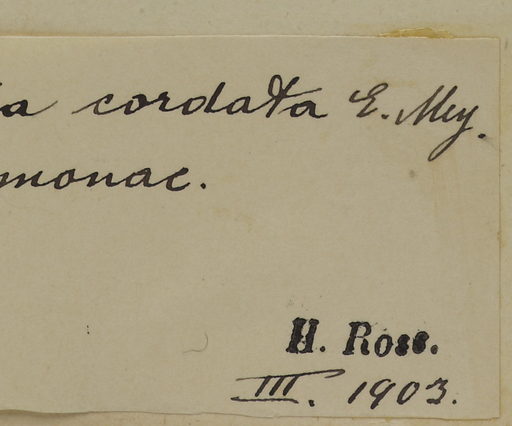 ia cordata E. Mey.
monac.
H. Ross.
III. 1903.